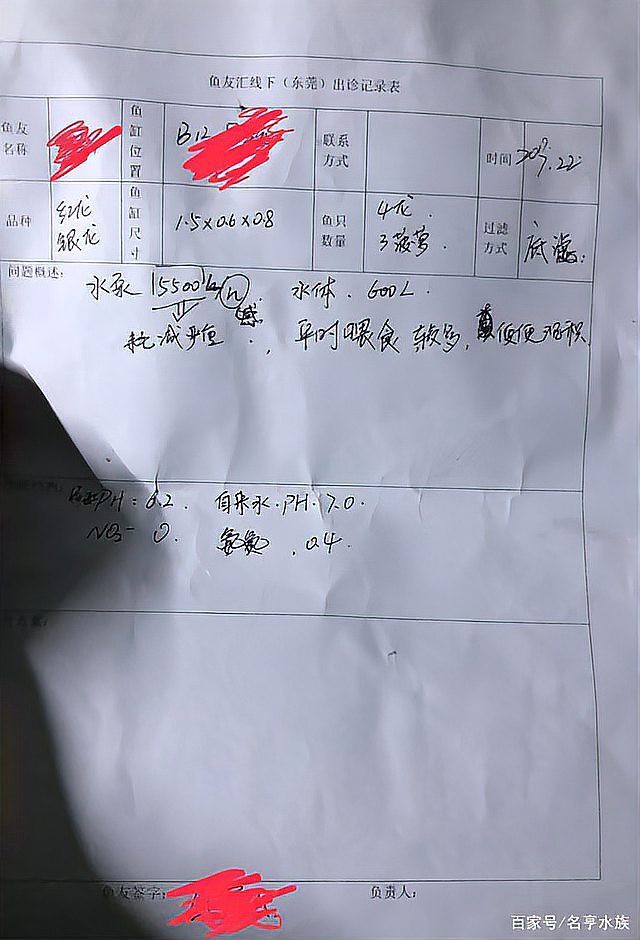 鱼友汇线下（东莞）出诊记录表
鱼友名称 鱼缸位置 B12 联系方式 时间
品种 红龙 银龙 鱼缸尺寸 1.5×0.6×0.8 鱼只数量 4龙. 3菠萝. 过滤方式 底滤.
问题概述:
水泵 15500L/h. 水体. 600L.
减少 , 平时喂食较多, 便便堆积
PH=6.2. 自来水.PH.7.0.
NO3- 0. 氨氮 . 0.4.
鱼友签字: 负责人:
百家号/名亨水族